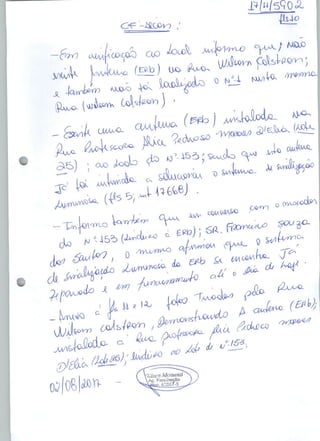 17/4/5902
CF-SECON:
- Em verificação ao local informo que, não
existe antena (ERB) na Rua Wilson Calstron;
e também não foi localizado o nº 1 nesta mesma
Rua (Wilson Calstron).
- Existe uma antena (ERB) instalada na
Rua Professora Alice Pedroso Moraes D'Elia (Lote
25); ao lado do nº 153; sendo que esta antena
já foi intimada a solucionar o sistema de sinalização
Luminosa (fls 5, int 17668).
- Informo também que em conversa com o morador
do nº 153 (vizinho à ERB); SR. Francisco Souza
dos Santos, o mesmo afirmou que o sistema
de sinalização Luminosa da ERB se encontra já
reparado e em funcionamento até o dia de hoje.
- Anexo à fls 11 e 12 fotos tiradas pela Rua
Wilson Calstron, demonstrando a antena (ERB);
instalada à Rua professora Alice Pedroso Moraes
D'Elia (Lote 25); ao lado do nº 153.
02/08/2017 -